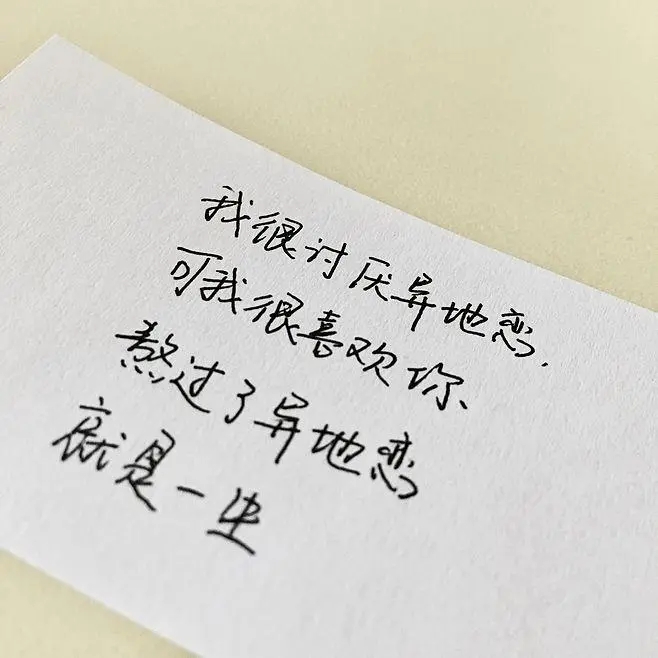 我很讨厌异地恋.
可我很喜欢你
熬过了异地恋
就是一生